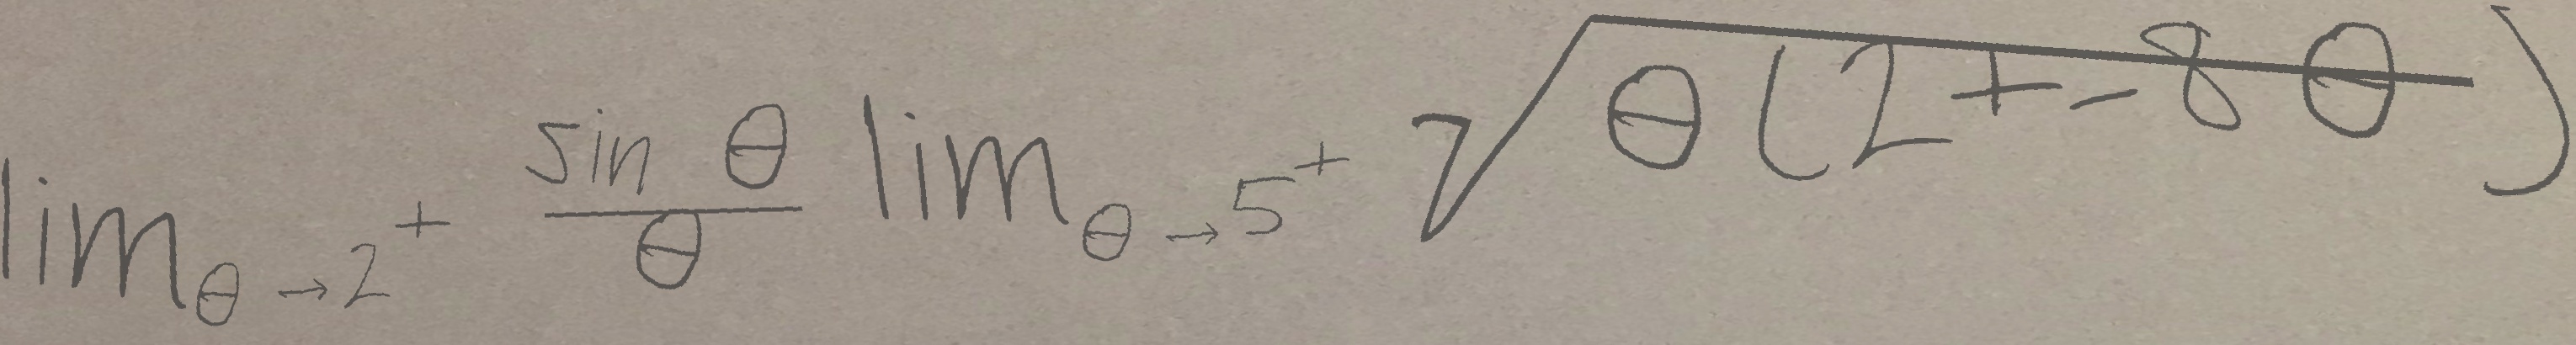 lim_{θ→2^+} \frac{sin θ}{θ} lim_{θ→5^+} \sqrt{θ(2+-8θ)}